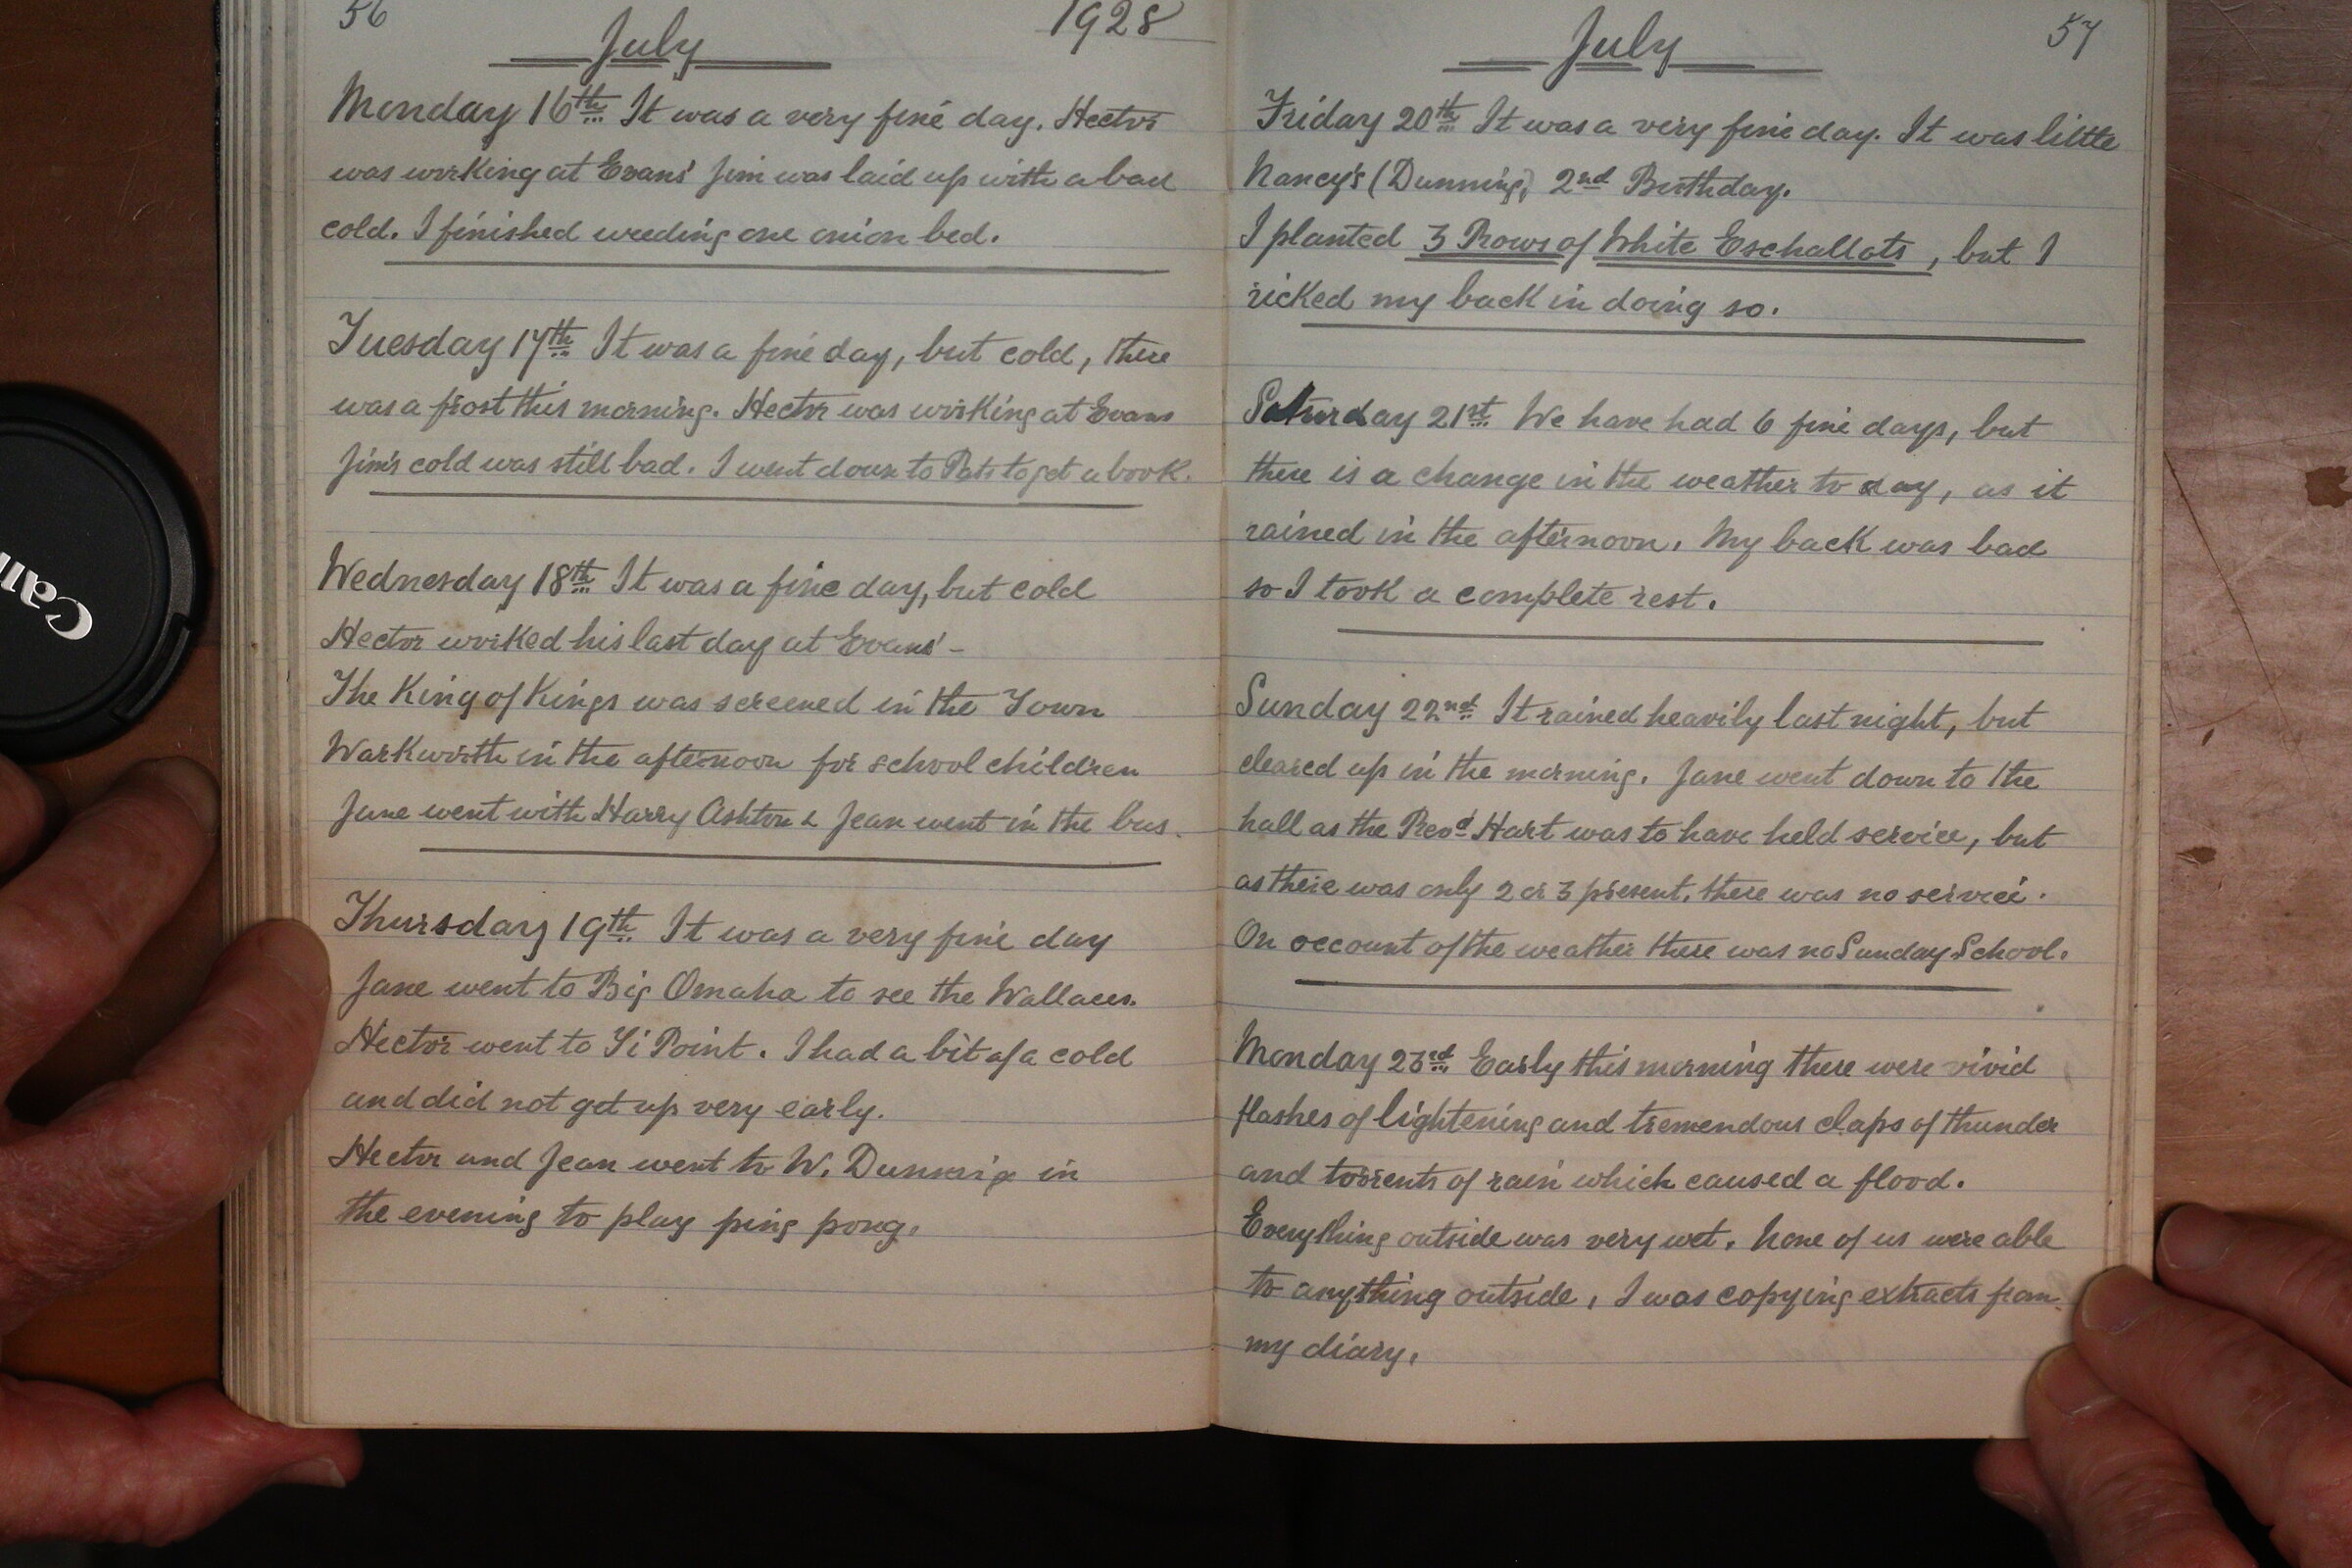 56
1928
July
Monday 16th It was a very fine day. Hector
was working at Evans' Jim was laid up with a bad
cold. I finished weeding one onion bed.
Tuesday 17th It was a fine day, but cold, there
was a frost this morning. Hector was working at Evans
Jim's cold was still bad. I went down to Pats to get a book.
Wednesday 18th It was a fine day, but cold
Hector worked his last day at Evans' -
The King of Kings was screened in the Town
Warkworth in the afternoon for school children
Jane went with Harry Ashton & Jean went in the bus.
Thursday 19th It was a very fine day
Jane went to Big Omaha to see the Wallaces.
Hector went to Ti Point. I had a bit of a cold
and did not get up very early.
Hector and Jean went to W. Dunning in
the evening to play ping pong.
57
July
Friday 20th It was a very fine day. It was little
Nancy's (Dunning) 2nd Birthday.
I planted 3 Rows of White Eschallots, but I
ricked my back in doing so.
Saturday 21st We have had 6 fine days, but
there is a change in the weather to day, as it
rained in the afternoon. My back was bad
so I took a complete rest.
Sunday 22nd It rained heavily last night, but
cleared up in the morning. Jane went down to the
hall as the Revd Hart was to have held service, but
as there was only 2 or 3 present, there was no service.
On account of the weather there was no Sunday School.
Monday 23rd Early this morning there were vivid
flashes of lightening and tremendous claps of thunder
and torrents of rain which caused a flood.
Everything outside was very wet. None of us were able
to anything outside, I was copying extracts from
my diary.